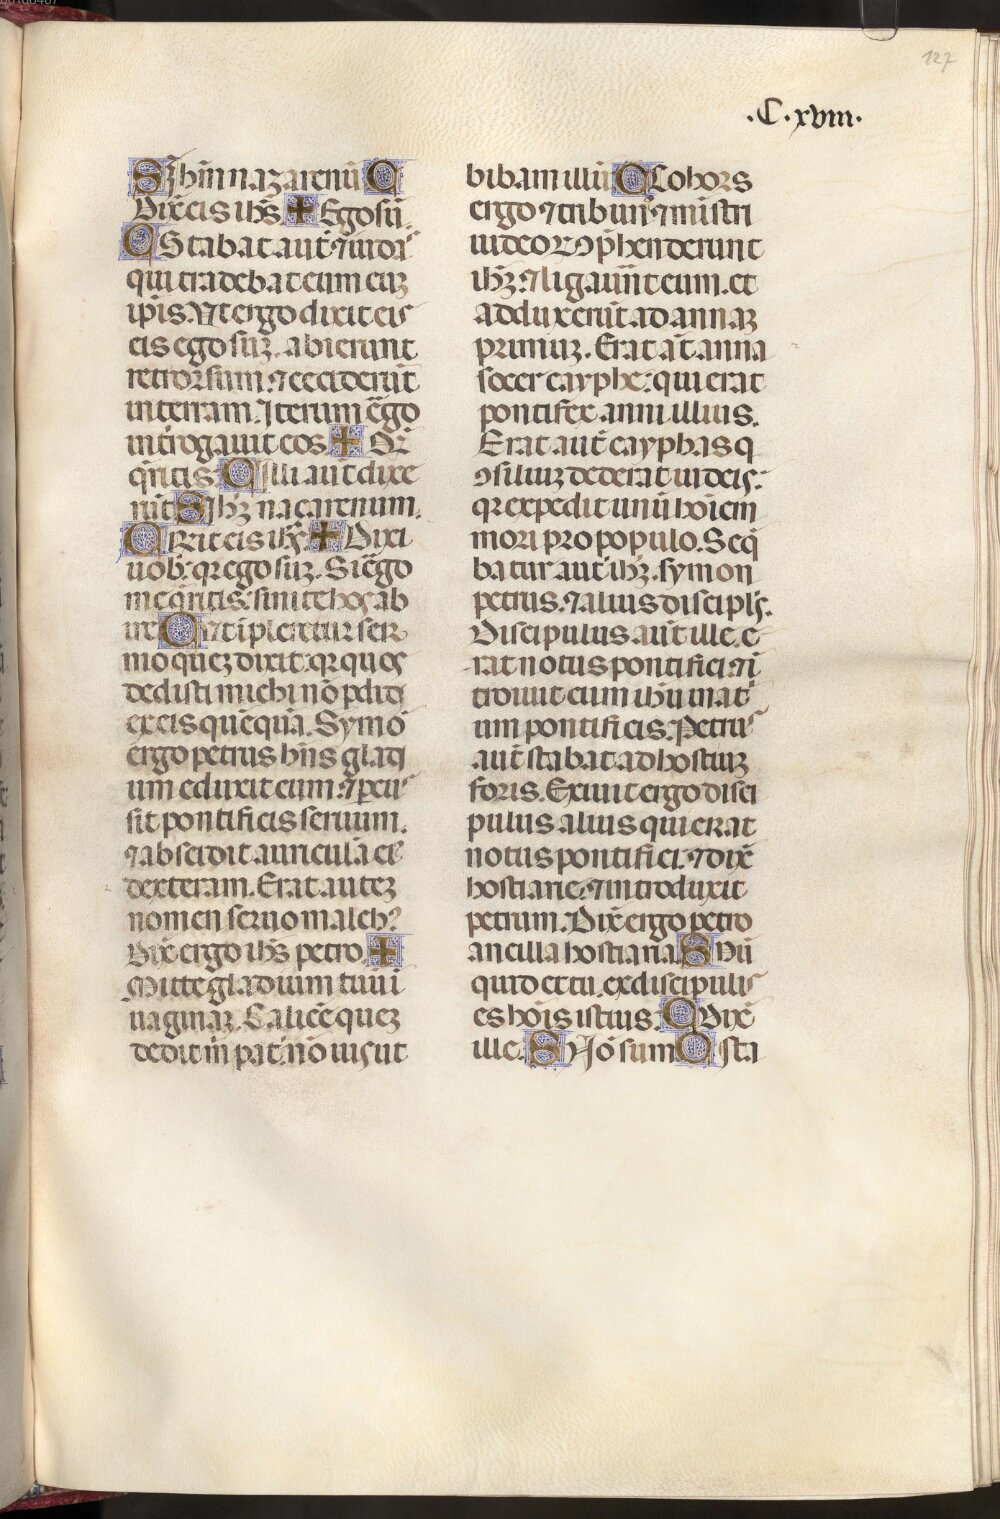 127
.C.xviii.
S Ihm nazarenū C
Dix̄ eis ihs̄ + Ego sū
C Stabat aut̄ ⁊ iuda⁹
qui tradebat eum cuȝ
ipīs. Vt ergo dixit eis
eis ego suȝ. abierunt
retrorsum ⁊ ceciderūt
in terram. Iterum ēgo
introgauit eos + Qē
q̄ritis C illi aut̄ dixe
rūt S Ihȝ naçarenum.
C Rx̄it eis ihs̄ + Dixi
uob̄: qꝛ ego suȝ. Si ēgo
me q̄ritis: sinite hos ab
ire C Vt īpleretur ser
mo queȝ dixit: qꝛ quos
dedisti michi nō pdidi
ex eis quēquā. Symō
ergo petrus hn̄s gladi
um eduxit eum: ⁊ pcus
sit pontificis seruum.
⁊ abscidit auriculā ei⁹
dexteram. Erat auteȝ
nomen seruo malch⁹
Dix̄ ergo ihs̄ petro +
Mitte gladium tuū ī
uaginaȝ. Calicē queȝ
dedit m̄ pat̄ nō uis ut
bibam illū C Cohors
ergo ⁊ tribun⁹ ⁊ minstri
iudeoꝝ ꝯp̄henderunt
ihȝ: ⁊ ligauer̄t eum. et
adduxerūt ad annaȝ
primuȝ. Erat at̄ anna
socer cayphe: qui erat
pontifex anni illius.
Erat aut̄ cayphas q
ꝯsiliuȝ dederat iudeis:
qꝛ expedit unū hoīem
mori pro populo. Seq̄
batur aut̄ ihȝ. symon
petrus. ⁊ alius discipls̄.
Discipulus aut̄ ille e
rat notus pontifici: ⁊ ī
troiuit cum ihū in at
um pontificis. Petrus
aut̄ stabat ad hostiuȝ
foris. Exiuit ergo disci
pulus alius qui erat
notus pontifici. ⁊ dix̄
hostiarie. ⁊ introduxit
petrum. Dix̄ ergo petro
ancilla hostiaria S Nū
quid et tu. ex discipulis
es hoīs istius C Dixē
ille. S Nō sum C Sta